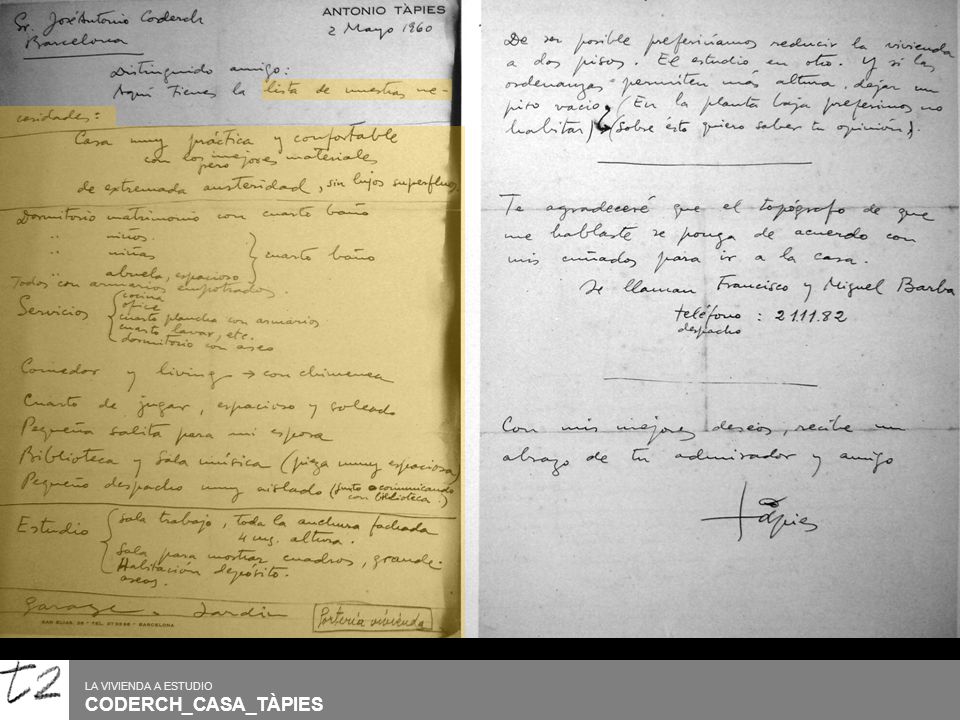 Sr. José Antonio Coderch
Barcelona
ANTONIO TÀPIES
2 Mayo 1960
Distinguido amigo:
Aquí tienes la lista de nuestras ne-
cesidades:
Casa muy práctica y confortable
con los mejores materiales
pero
de extremada austeridad, sin lujos superfluos.
Dormitorio matrimonio con cuarto baño
" niños.
" niñas } cuarto baño
" abuela, espacioso
Todos con armarios empotrados.
Servicios { cocina
office
cuarto plancha con armarios
cuarto lavar, etc.
dormitorio con aseo
Comedor y living → con chimenea
Cuarto de jugar, espacioso y soleado
Pequeña salita para mi esposa
Biblioteca y sala música (pieza muy espaciosa)
Pequeño despacho muy aislado (junto o comunicando
con biblioteca.)
Estudio { sala trabajo, toda la anchura fachada
4 m. altura.
Sala para mostrar cuadros, grande.
Habitación depósito.
aseos.
Garage. Jardin
Portería vivienda
SAN ELIAS, BARCELONA
De ser posible preferiríamos reducir la vivienda
a dos pisos. El estudio en otro. Y si las
ordenanzas permiten más altura, dejar un
piso vacío, (En la planta baja preferimos no
habitar) (sobre ésto quiero saber tu opinión).
Te agradeceré que el topógrafo de que
me hablaste se ponga de acuerdo con
mis cuñados para ir a la casa.
Se llaman Francisco y Miguel Barba
teléfono : 21.11.82
despacho
Con mis mejores deseos, recibe un
abrazo de tu admirador y amigo
Tàpies
t2
LA VIVIENDA A ESTUDIO
CODERCH_CASA_TÀPIES